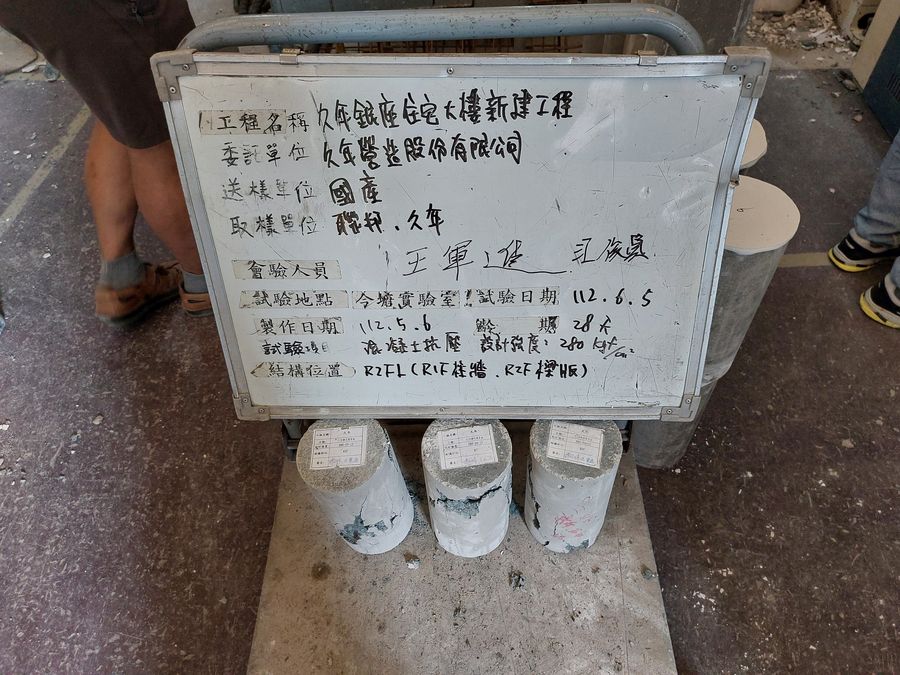 工程名稱 久年銀座住宅大樓新建工程
委託單位 久年營造股份有限公司
送樣單位 國產
取樣單位 聯邦、久年
會驗人員 王軍進
試驗地點 今塘實驗室 試驗日期 112.6.5
製作日期 112.5.6 齡期 28天
試驗項目 混凝土抗壓 設計強度:280 kgf/cm²
結構位置 R2FL(R1F柱牆、R2F樑版)